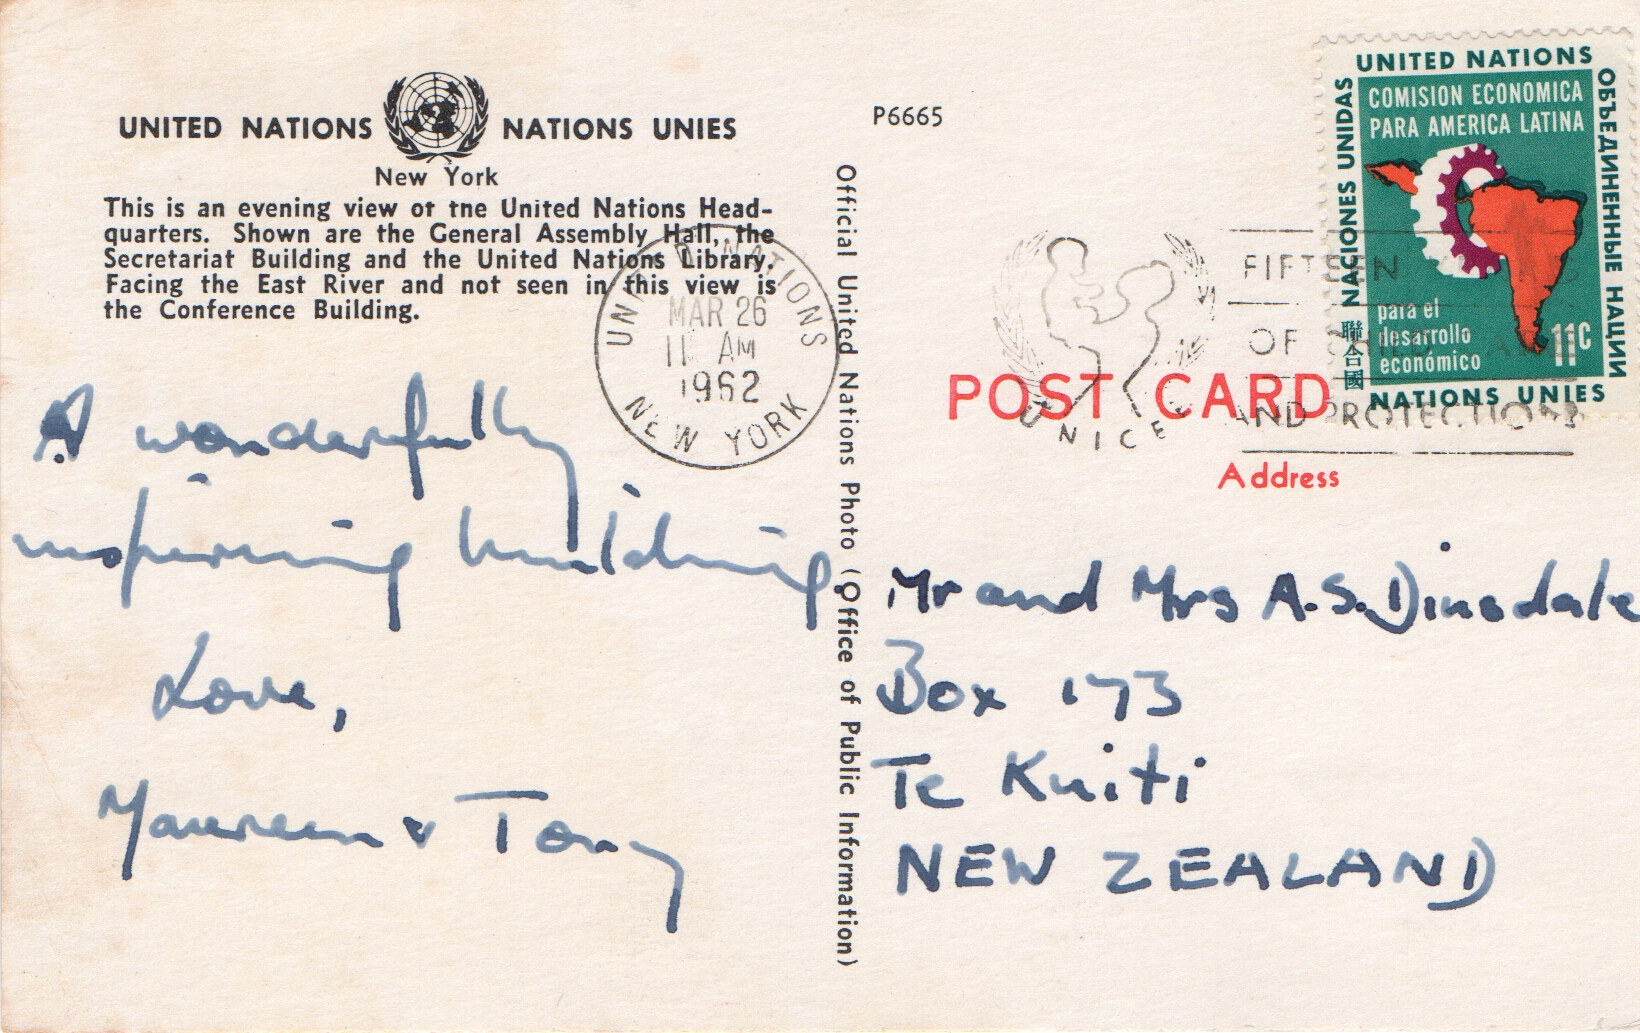 UNITED NATIONS NATIONS UNIES
New York
This is an evening view of the United Nations Head-
quarters. Shown are the General Assembly Hall, the
Secretariat Building and the United Nations Library.
Facing the East River and not seen in this view is
the Conference Building.
A wonderfully
inspiring building
Love,
Maureen & Tony
UNITED NATIONS
MAR 26
11 AM
1962
NEW YORK
Official United Nations Photo (Office of Public Information)
P6665
UNITED NATIONS
COMISION ECONOMICA
PARA AMERICA LATINA
NACIONES UNIDAS
聯合國
ОБЪЕДИНЕННЫЕ НАЦИИ
para el
desarrollo
económico
11c
NATIONS UNIES
UNICE
FIFTEEN
OF CHILD
AND PROTECTION
POST CARD
Address
Mr and Mrs A.S. Dinsdale
Box 173
Te Kuiti
NEW ZEALAND